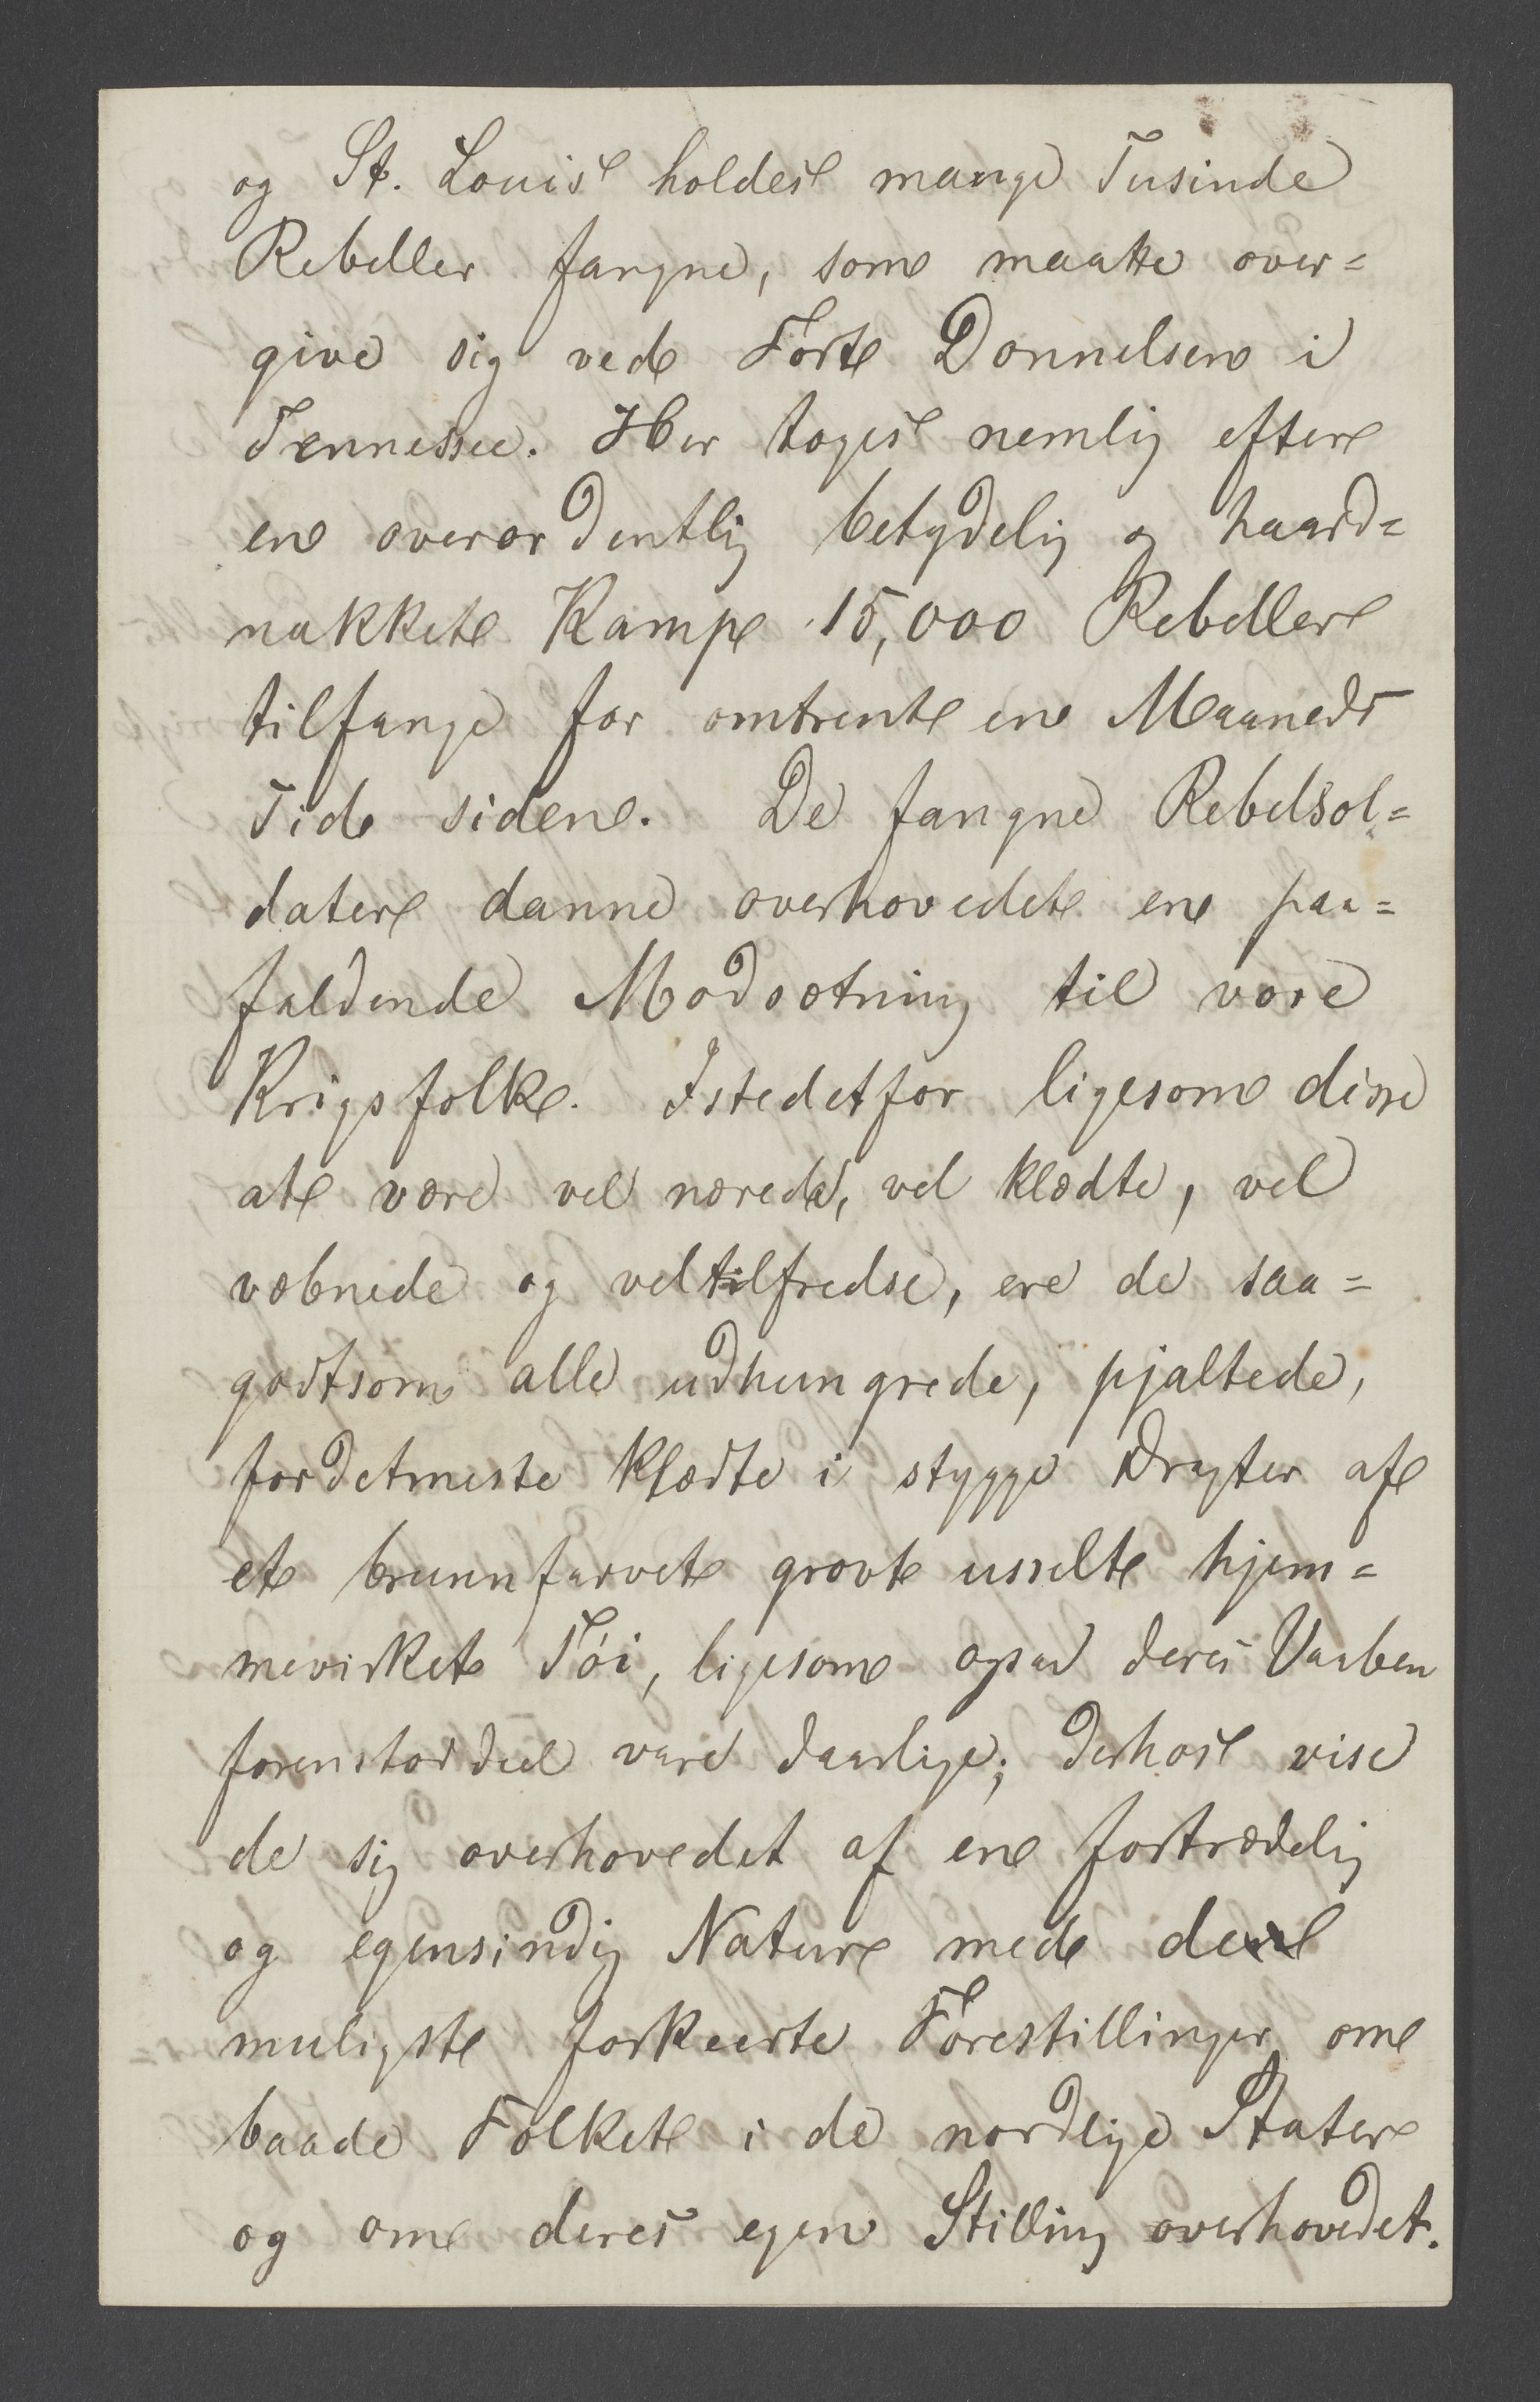 og St. Louis holdes mange Tusinde
Rebeller fangne, som maatte over=
give sig ved Fort Donnelsen i
Tennessee. Her toges nemlig efter
en overordentlig betydelig og haard=
nakket Kamp 15,000 Rebeller
tilfange for omtrent en Maaneds
Tid siden. De fangne Rebelsol=
dater danne overhovedet en paa=
faldende Modsætning til vore
Krigsfolk. Istedetfor ligesom disse
at være vel nærede, vel klædte, vel
væbnede og veltilfredse, ere de saa=
godtsom alle udhungrede, pjaltede,
fordetmeste klædte i stygge Dragter af
et bruunfarvet grovt usselt hjem=
mevirket Tøi, ligesom ogsaa deres Vaaben
forenstordeel vare daarlige; derhos vise
de sig overhovedet af en fortrædelig
og egensindig Natur med de
muligst forkeerte Forestillinger om
baade Folket i de nordlige Stater
og om deres egen Stilling overhovedet.